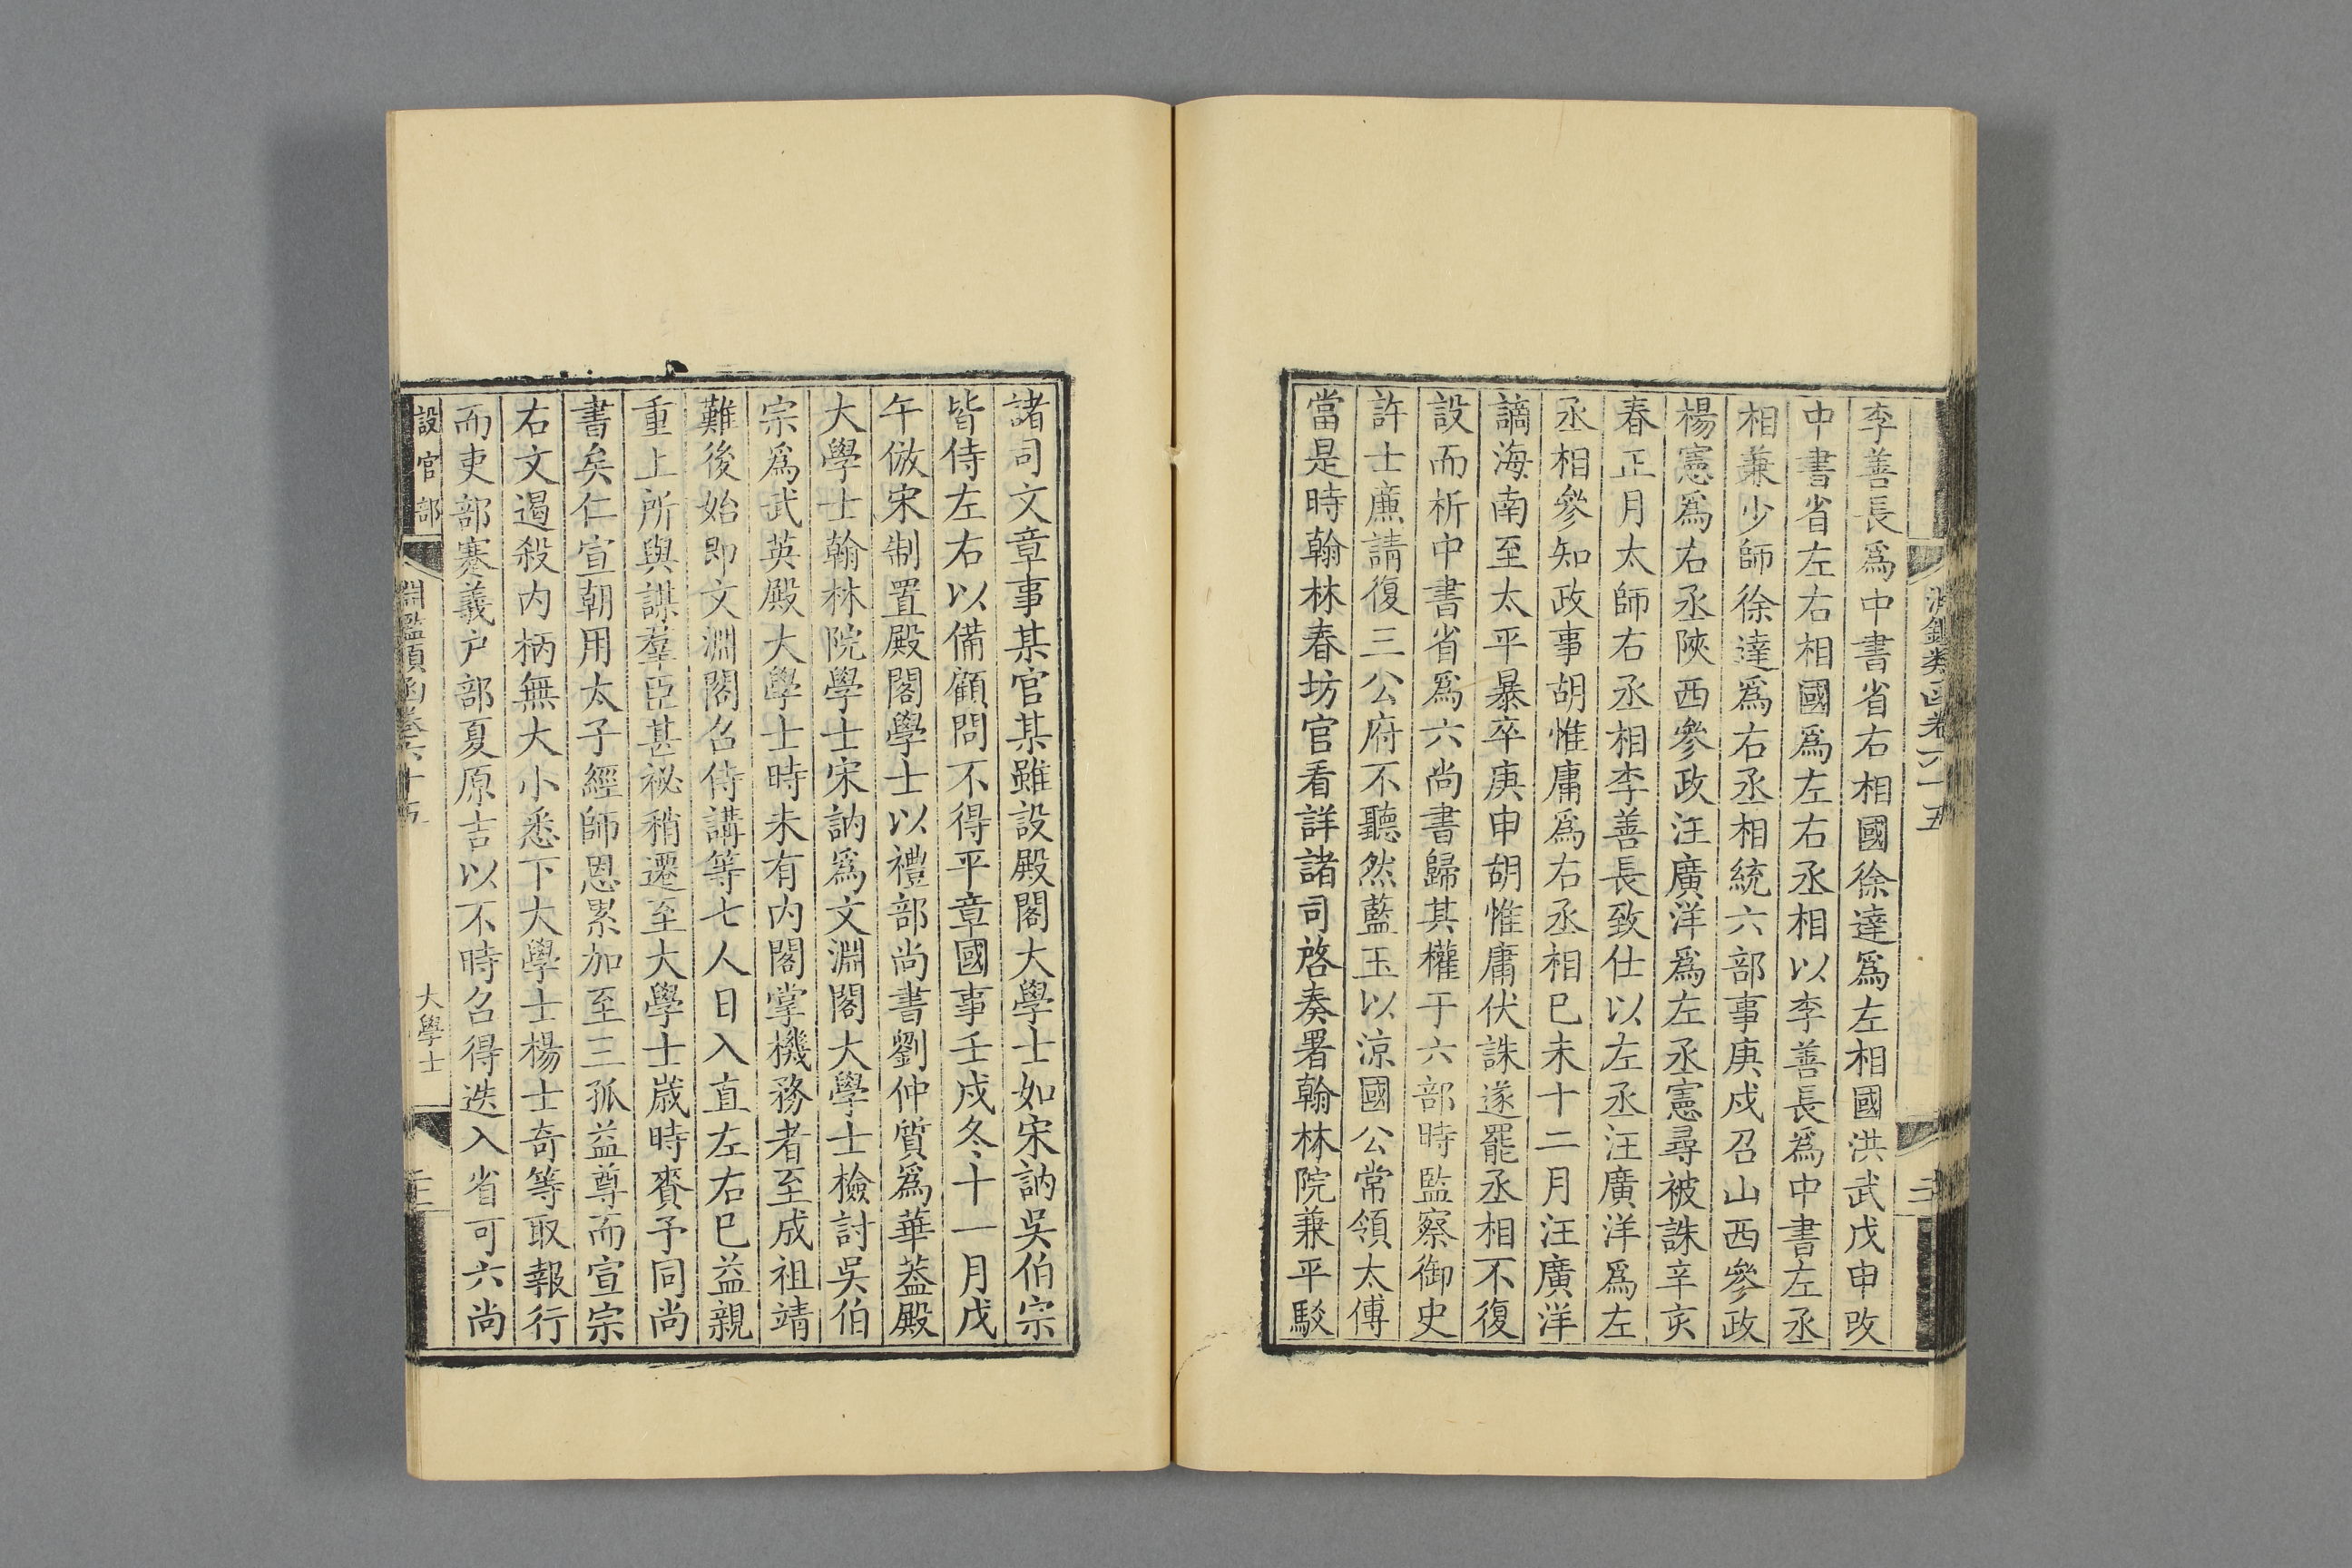 李善長爲中書省右相國徐達爲左相國洪武戊申改
中書省左右相國爲左右丞相以李善長爲中書左丞
相兼少師徐達爲右丞相統六部事庚戌召山西參政
楊憲爲右丞陝西參政汪廣洋爲左丞憲尋被誅辛亥
春正月太師右丞相李善長致仕以左丞汪廣洋爲左
丞相參知政事胡惟庸爲右丞相巳未十二月汪廣洋
謫海南至太平暴卒庚申胡惟庸伏誅遂罷丞相不復
設而析中書省爲六尚書歸其權于六部時監察御史
許士廉請復三公府不聽然藍玉以涼國公常領太傅
當是時翰林春坊官看詳諸司啓奏署翰林院兼平駁
諸司文章事某官某雖設殿閣大學士如宋訥吳伯宗
皆侍左右以備顧問不得平章國事壬戌冬十一月戊
午倣宋制置殿閣學士以禮部尚書劉仲質爲華葢殿
大學士翰林院學士宋訥爲文淵閣大學士檢討吳伯
宗爲武英殿大學士時未有内閣掌機務者至成祖靖
難後始即文淵閣召侍講等七人日入直左右巳益親
重上所與謀羣臣甚祕稍遷至大學士歲時賚予同尚
書矣仁宣朝用太子經師恩累加至三孤益尊而宣宗
右文遏殺内柄無大小悉下大學士楊士奇等取報行
而吏部蹇義户部夏原吉以不時召得迭入省可六尚
設官部 淵鑑類函卷六十五 大學士 三